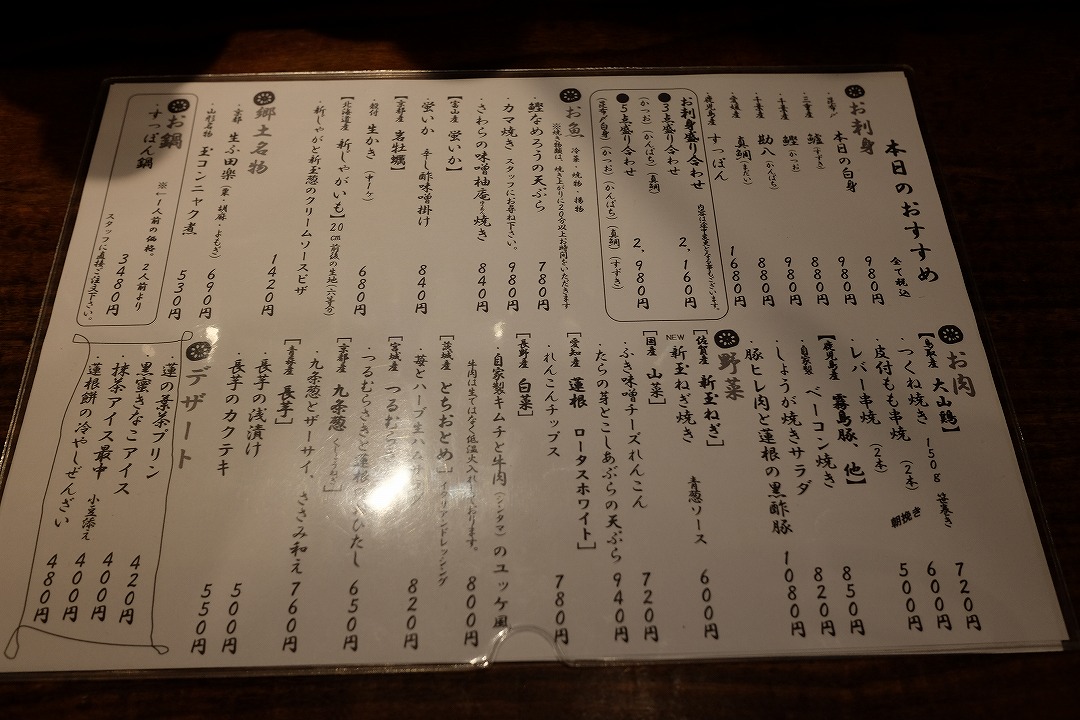 本日のおすすめ
全て税込
お刺身
・昆布〆 本日の白身 980円
・三重産 鱸(すずき) 980円
・千葉産 鰹(かつお) 880円
・千葉産 勘八(かんぱち) 980円
・愛媛産 真鯛(まだい) 880円
・鹿児島産 すっぽん 1680円
お刺身盛り合わせ 内容は途中変更となる事もございます。
●3点盛り合わせ 2,160円
(かつお)(かんぱち)(真鯛)
●5点盛り合わせ 2,980円
(昆布〆白身)(かつお)(かんぱち)(真鯛)(すずき)
お魚 冷菜・焼物・揚物
※焼き物類は、焼き上がりに20分以上お時間をいただきます
・鰹なめろうの天ぷら 780円
・カマ焼き スタッフにお尋ね下さい。 980円
・さわらの味噌柚庵焼き 840円
【富山産 蛍いか】
・蛍いか 辛し酢味噌掛け 840円
【京都産 岩牡蠣】
・殻付 生かき (1ケ) 680円
【北海道産 新じゃがいも】20cm前後の生地(六等分)
・新じゃがと新玉葱のクリームソースピザ 1420円
郷土名物
・京都 生ふ田楽(粟・胡麻・よもぎ) 690円
・山形名物 玉コンニャク煮 530円
お鍋
・すっぽん鍋 3480円
※1人前の価格。2人前より
スタッフに直接ご注文下さい。
お肉
【鳥取産 大山鶏】 150g 笹巻き 720円
・つくね焼き 600円
・皮付もも串焼 (2本) 500円
・レバー串焼 (2本) 朝挽き
【鹿児島産 霧島豚、他】
・自家製 ベーコン焼き 850円
・しょうが焼きサラダ 820円
・豚ヒレ肉と蓮根の黒酢豚 1080円
野菜
【佐賀産 新玉ねぎ】
NEW 新玉ねぎ焼き 青葱ソース 600円
【国産 山菜】
・ふき味噌チーズれんこん 720円
・たらの芽とこしあぶらの天ぷら 940円
【愛知産 蓮根 ロータスホワイト】
・れんこんチップス 780円
【長野産 白菜】
・自家製キムチと牛肉(シンタマ)のユッケ風 800円
牛肉は生ではなく低温火入れしております。
【茨城産 とちおとめ】イタリアンドレッシング
・苺とハーブ生ハムサラダ 820円
【宮城産 つるむらさき】
・つるむらさきと蓮根のおひたし 650円
【京都産 九条葱(くじょうねぎ)】
・九条葱とザーサイ、ささみ和え 760円
【青森産 長芋】
・長芋の浅漬け 500円
・長芋のカクテキ 550円
デザート
・蓮の葉茶プリン 420円
・黒蜜きなこアイス 400円
・抹茶アイス最中 小豆添え 400円
・蓮根餅の冷やしぜんざい 480円